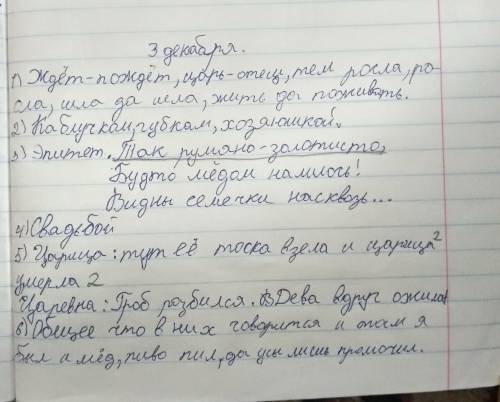 3 декабря.
1) Ждёт-пождёт, царь-отец, тем росла, ро-
сла, шла да шла, жить да поживать.
2) Каблучком, губкам, хозяюшкой.
3) Эпитет. Так румяно-золотисто,
Будто мёдом налилось!
Видны семечки насквозь...
4) Свадьбой
5) Царица: тут её тоска взела и царица 2
умерла 2
Царевна: Гроб розбился. В Дева вдруг ожила
6) Общее что в них говорится и там я
был а мёд, пиво пил, да усы лишь промочил.